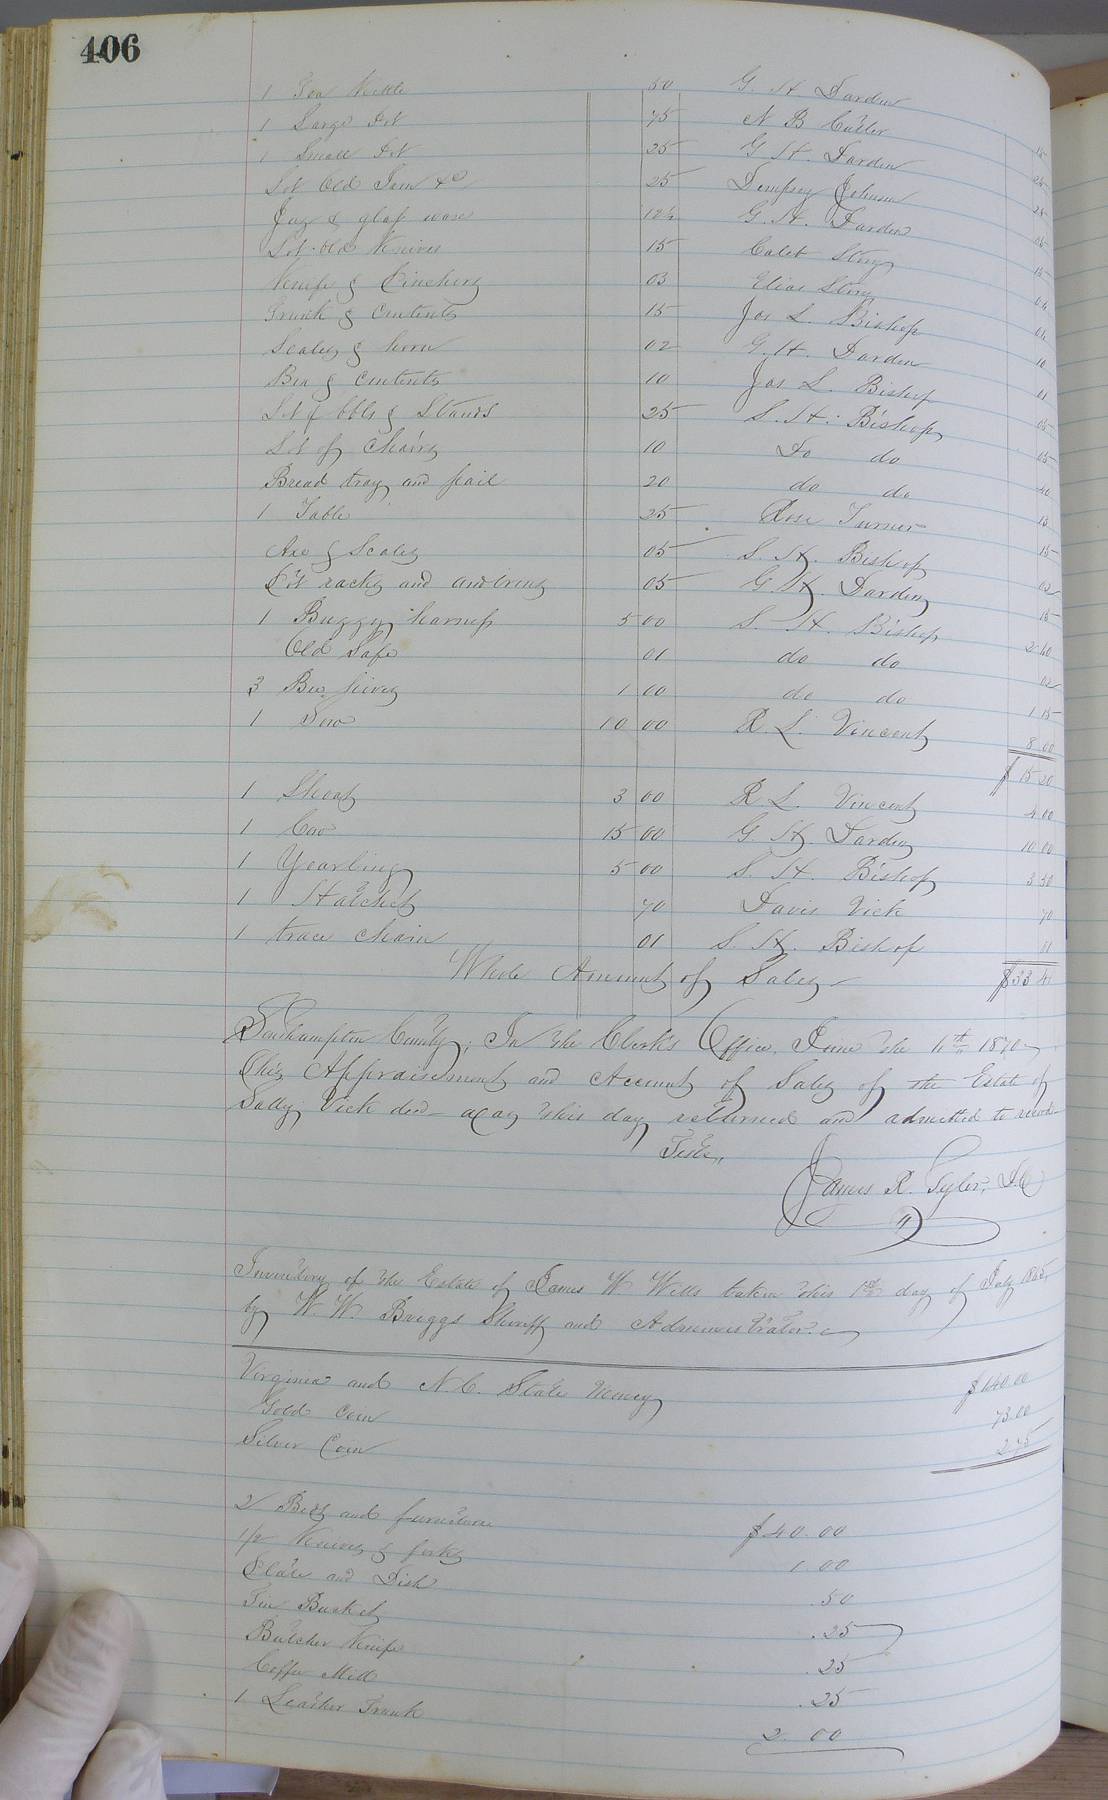 406
1 Tea Kettle 50 G. H. Darden 15
1 Large Pot 75 N B Cutler 25
1 Small Pot 25 G. H. Darden 25
Lot Old Iron &c 25 Dempsey Johnson 05
Jug & glass ware 12½ G. H. Darden 15
Lot old Knives 15 Caleb Story
Knife & Pinchers 03 Elias Story
Trunk & contents 15 Jos L. Bishop 10
Scales & horn 02 G. H. Darden 01
Box & contents 10 Jas L. Bishop 05
Lot of bbls & Stands 25 S. H. Bishop 05
Lot of Chairs 10 Do do 40
Bread tray and pail 20 do do 13
1 Table 25 Rose Turner 15
Axe & Scales 05 S. H. Bishop 02
Pot racks and andirons 05 G H. Darden 15
1 Buggy harness 5 00 S. H. Bishop 2 40
Old Safe 01 do do 02
3 Bee hives 1 00 do do 1 15
1 Sow 10 00 R. L. Vincent 8 00
$15 20
1 Shoat 3 00 R. L. Vincent 4 00
1 Cow 15 00 G H. Darden 10 00
1 Yearling 5 00 S. H. Bishop 3 50
1 Hatchet 70 Davis Vick 70
1 trace chain 01 S. H. Bishop 01
Whole Amount of Sales $33 41
Southampton County; In the Clerk's Office, June the 11th 1870
This Appraisement and Account of Sales of the Estate of
Sally Vick decd was this day returned and admitted to record
Teste,
James R. Tyler, D.C
Inventory of the Estate of James W Wills taken this 1st day of July 1865,
by W. W. Briggs Sheriff and Administrator.
Virginia and N.C. State Money $140.00
Gold Coin 73.00
Silver Coin 2.75
2 Beds and furniture $40.00
Knives & forks 1.00
Plate and Dish .50
Tin Bucket .25
Butcher Knife .25
Coffee Mill .25
1 Leather Trunk 2.00